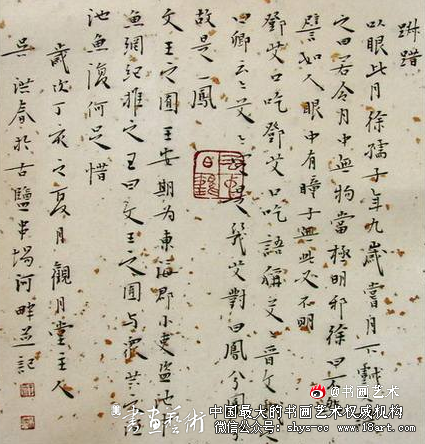 踧踖
以眼比月徐孺子年九歲嘗月下戲
之曰若令月中無物當極明邪徐曰不然
譬如人眼中有瞳子無此必不明
鄧艾口吃鄧艾口吃語稱艾艾晉文王
曰卿云艾艾是幾艾對曰鳳兮鳳
故是一鳳
文王之囿王安期為東海郡小吏盜池中
魚綱紀推之王曰文王之囿與衆共之
池魚復何足惜
歲次丁亥之夏月觀月堂主人
吳洪春於古鹽串場河畔並記
@书画艺术
書畫藝術
中国最大的书画艺术权威机构
微信公众号：shys-cc www.18art.com